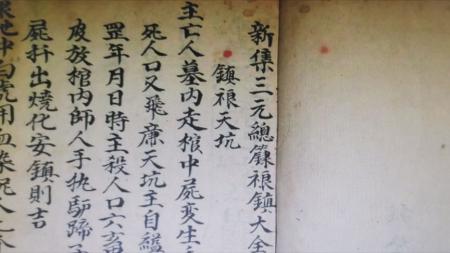 新集三元總籙禳鎮大全
鎮禳天坑
主亡人墓內走棺中屍変生
死人口又飛廉天坑主自縊
罡年月日時主殺人口六畜
皮放棺內師人手执驴蹄子
屍扞出燒化安鎮則吉
地中白虎用血染死人